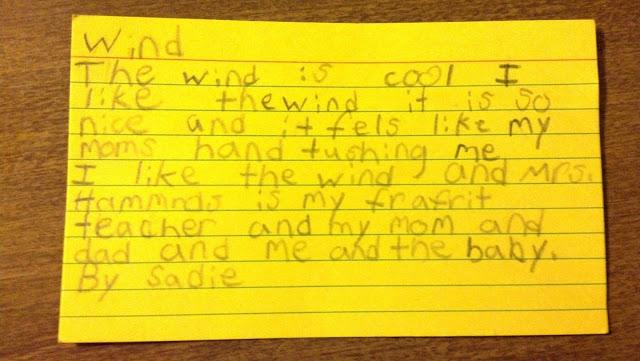 Wind
The wind is cool I
like thewind it is so
nice and it fels like my
moms hand tushing me
I like the wind and Mrs.
Hammnds is my frafrit
teacher and my mom and
dad and me and the baby.
By Sadie